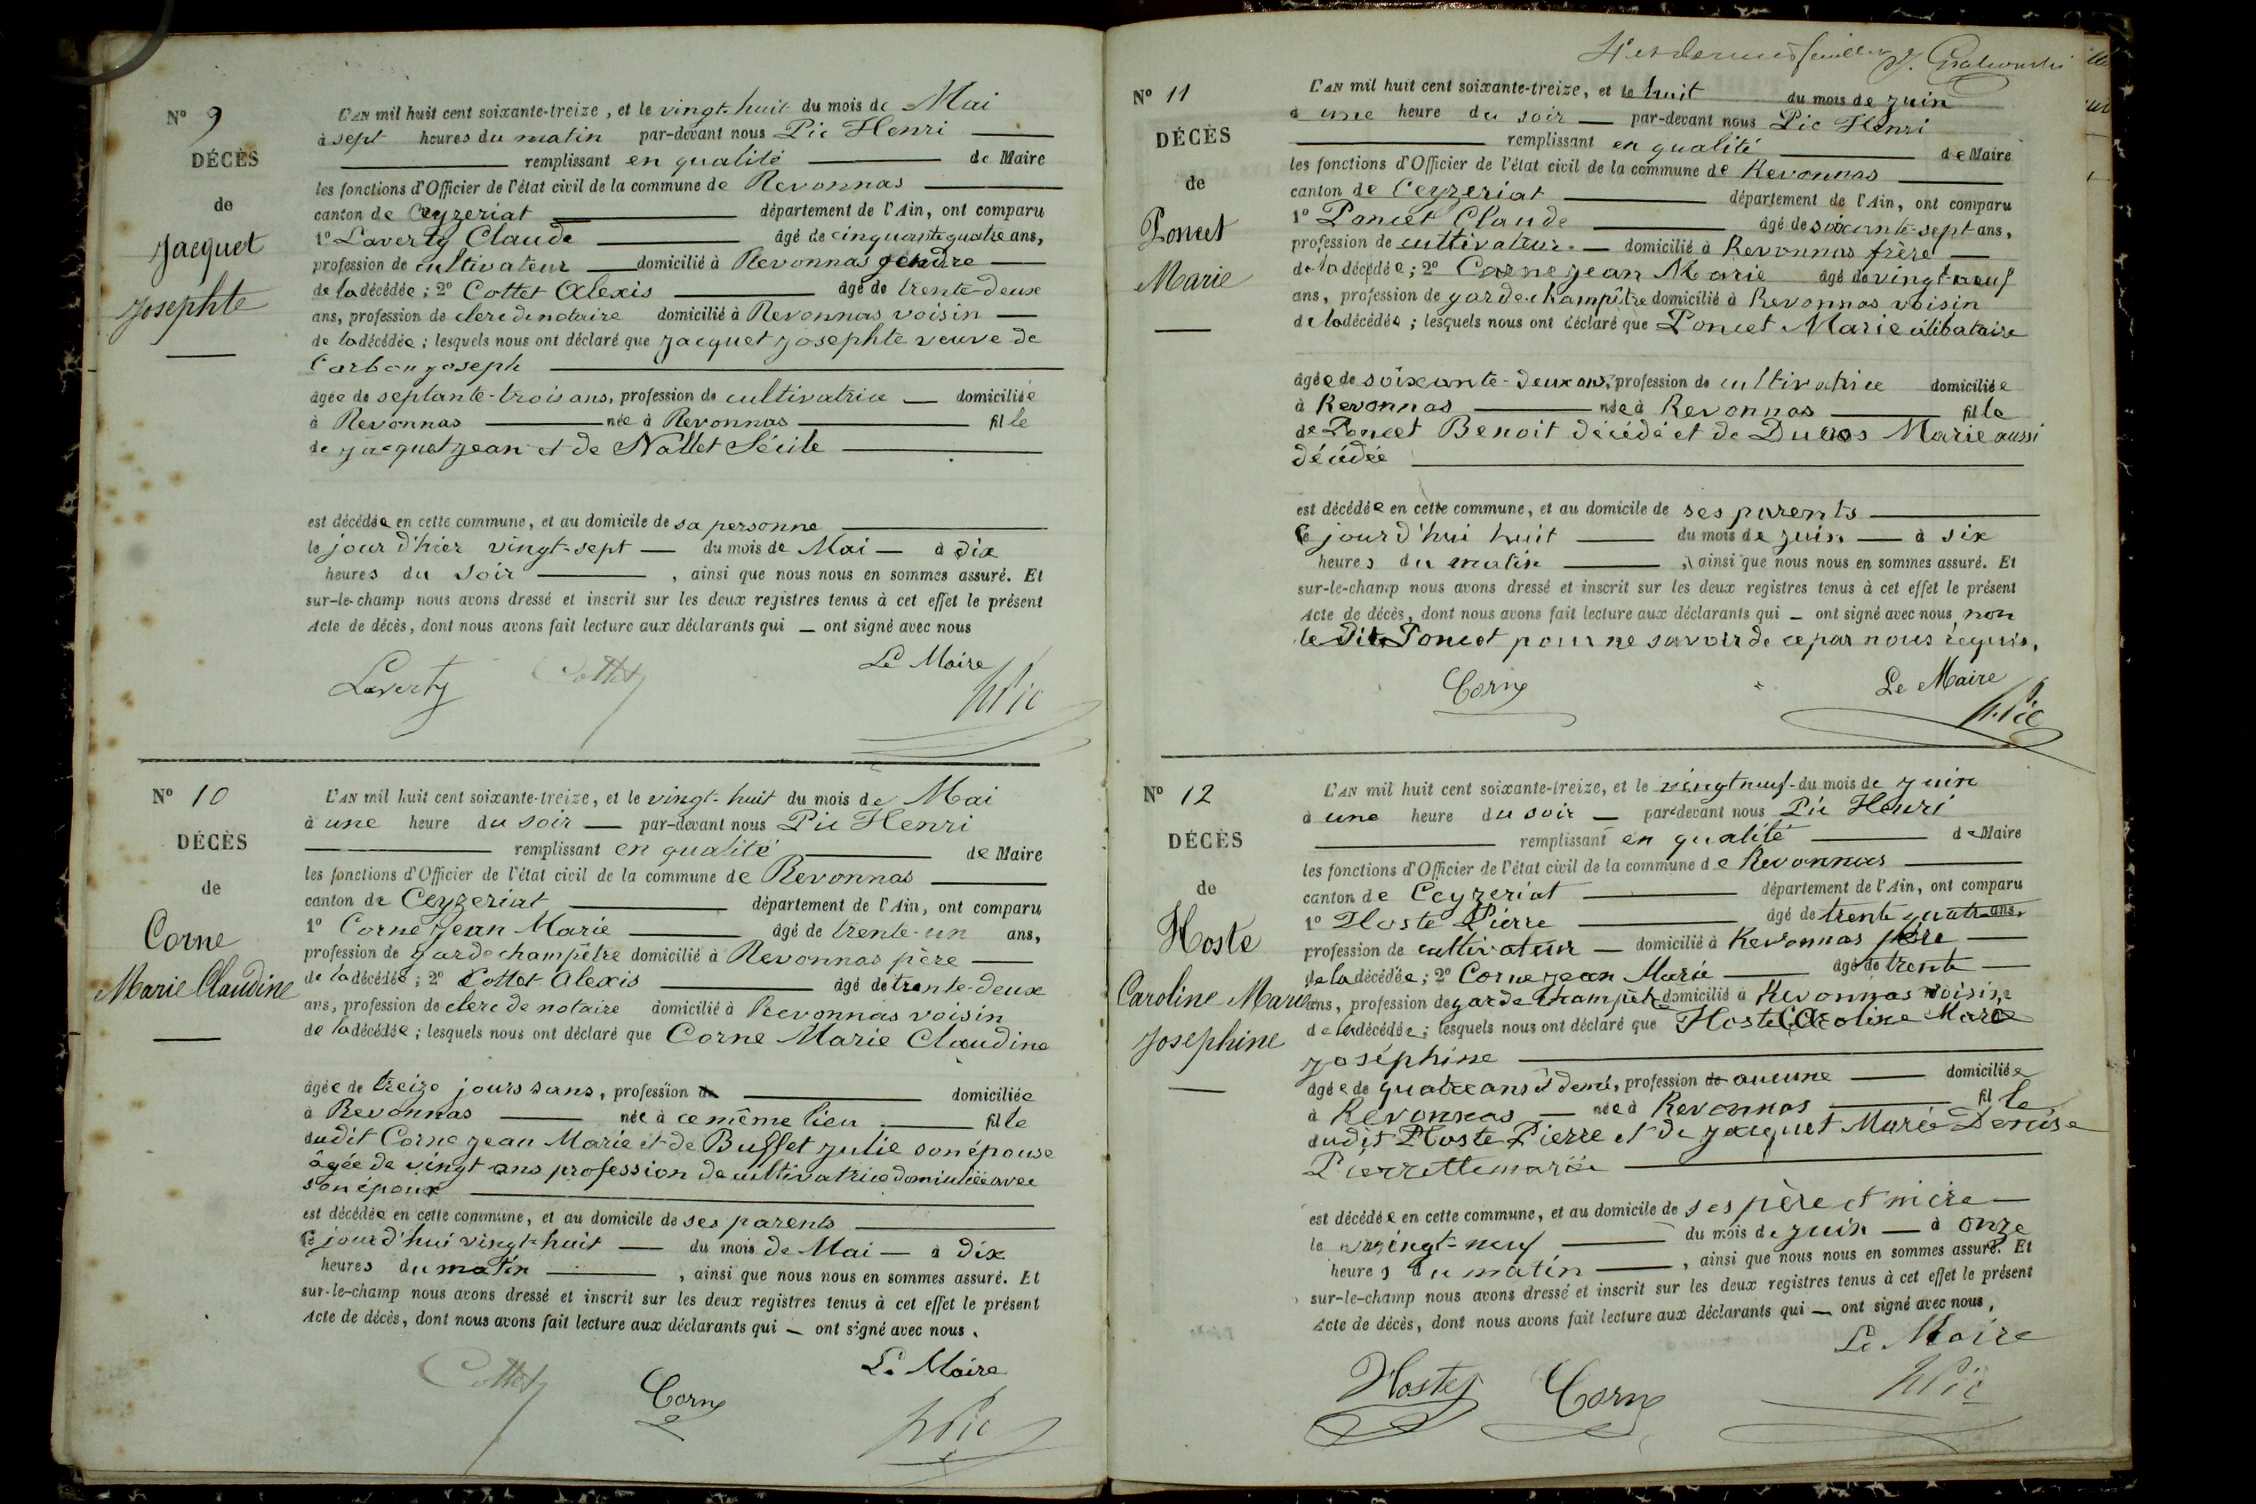 Nº 9
DÉCÈS
de
Jacquet
Josephte
L'AN mil huit cent soixante-treize, et le vingt-huit du mois de Mai
à sept heures du matin par-devant nous Pic Henri
remplissant en qualité de Maire
les fonctions d'Officier de l'état civil de la commune de Revonnas
canton de Ceyzeriat département de l'Ain, ont comparu
1º Laverty Claude âgé de cinquante quatre ans,
profession de cultivateur domicilié à Revonnas gendre
de la décédée ; 2º Cottet Alexis âgé de trente-deux
ans, profession de clerc de notaire domicilié à Revonnas voisin
de la décédée ; lesquels nous ont déclaré que Jacquet Josephte veuve de
Carbon Joseph
âgée de septante-trois ans, profession de cultivatrice domiciliée
à Revonnas née à Revonnas fille
de Jacquet Jean et de Nallet Sécile
est décédée en cette commune, et au domicile de sa personne
le jour d'hier vingt-sept du mois de Mai à dix
heures du soir , ainsi que nous nous en sommes assuré. Et
sur-le-champ nous avons dressé et inscrit sur les deux registres tenus à cet effet le présent
Acte de décès, dont nous avons fait lecture aux déclarants qui ont signé avec nous
Le Maire
Laverty Cottet HPic
Nº 10
DÉCÈS
de
Corne
Marie Claudine
L'AN mil huit cent soixante-treize, et le vingt-huit du mois de Mai
à une heure du soir par-devant nous Pic Henri
remplissant en qualité de Maire
les fonctions d'Officier de l'état civil de la commune de Revonnas
canton de Ceyzeriat département de l'Ain, ont comparu
1º Corne Jean Marie âgé de trente-un ans,
profession de garde champêtre domicilié à Revonnas père
de la décédée ; 2º Cottet Alexis âgé de trente-deux
ans, profession de clerc de notaire domicilié à Revonnas voisin
de la décédée ; lesquels nous ont déclaré que Corne Marie Claudine
âgée de treize jours sans, profession de domiciliée
à Revonnas née à ce même lieu fille
dudit Corne Jean Marie et de Buffet Julie son épouse
âgée de vingt ans profession de cultivatrice domiciliée avec
son époux
est décédée en cette commune, et au domicile de ses parents
ce jourd'hui vingt-huit du mois de Mai à dix
heures du matin , ainsi que nous nous en sommes assuré. Et
sur-le-champ nous avons dressé et inscrit sur les deux registres tenus à cet effet le présent
Acte de décès, dont nous avons fait lecture aux déclarants qui ont signé avec nous.
Le Maire
Cottet Corne HPic
4e et dernier feuillet
Nº 11
DÉCÈS
de
Poncet
Marie
L'AN mil huit cent soixante-treize, et le huit du mois de Juin
à une heure du soir par-devant nous Pic Henri
remplissant en qualité de Maire
les fonctions d'Officier de l'état civil de la commune de Revonnas
canton de Ceyzeriat département de l'Ain, ont comparu
1º Poncet Claude âgé de soixante-sept ans,
profession de cultivateur domicilié à Revonnas frère
de la décédée ; 2º Corne Jean Marie âgé de vingt-neuf
ans, profession de garde champêtre domicilié à Revonnas voisin
de la décédée ; lesquels nous ont déclaré que Poncet Marie célibataire
âgée de soixante-deux ans, profession de cultivatrice domiciliée
à Revonnas née à Revonnas fille
de Poncet Benoit décédé et de Ducros Marie aussi
décédée
est décédée en cette commune, et au domicile de ses parents
ce jourd'hui huit du mois de Juin à six
heures du matin , ainsi que nous nous en sommes assuré. Et
sur-le-champ nous avons dressé et inscrit sur les deux registres tenus à cet effet le présent
Acte de décès, dont nous avons fait lecture aux déclarants qui ont signé avec nous non
le dit Poncet pour ne savoir de ce par nous requis.
Le Maire
Corne H.Pic
Nº 12
DÉCÈS
de
Hoste
Caroline Marie
Josephine
L'AN mil huit cent soixante-treize, et le vingt neuf du mois de Juin
à une heure du soir par-devant nous Pic Henri
remplissant en qualité de Maire
les fonctions d'Officier de l'état civil de la commune de Revonnas
canton de Ceyzeriat département de l'Ain, ont comparu
1º Hoste Pierre âgé de trente quatre ans,
profession de cultivateur domicilié à Revonnas père
de la décédée ; 2º Corne Jean Marie âgé de trente
ans, profession de garde champêtre domicilié à Revonnas voisin
de la décédée ; lesquels nous ont déclaré que Hoste Caroline Marie
Joséphine
âgée de quatre ans et demi, profession de aucune domiciliée
à Revonnas née à Revonnas fille
dudit Hoste Pierre et de Jacquet Marie Denise
Pierrette mariée
est décédée en cette commune, et au domicile de ses père et mère
le vingt-neuf du mois de Juin à onze
heures du matin , ainsi que nous nous en sommes assuré. Et
sur-le-champ nous avons dressé et inscrit sur les deux registres tenus à cet effet le présent
Acte de décès, dont nous avons fait lecture aux déclarants qui ont signé avec nous,
Le Maire
Hoste Corne HPic